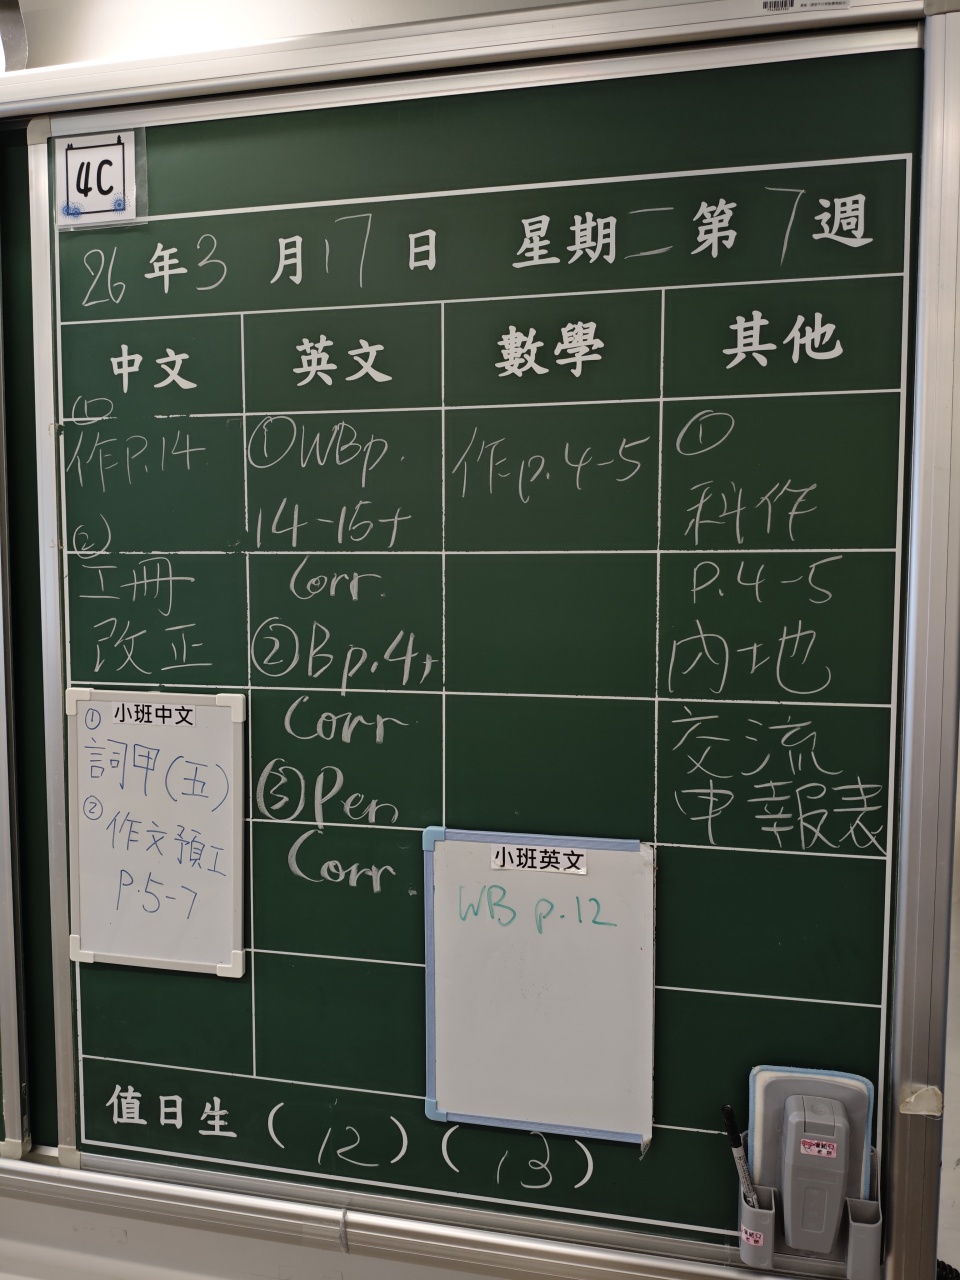 4C
26年3月17日 星期二第7週
中文 英文 數學 其他
①
作P.14
②
工冊
改正
①WBp.
14-15+
Corr.
②Bp.4,
Corr
③Pen
Corr.
作p.4-5
①
科作
P.4-5
內地
交流
申報表
小班中文
①
詞甲(五)
②
作文預工
P.5-7
小班英文
WB p.12
值日生(12)(13)